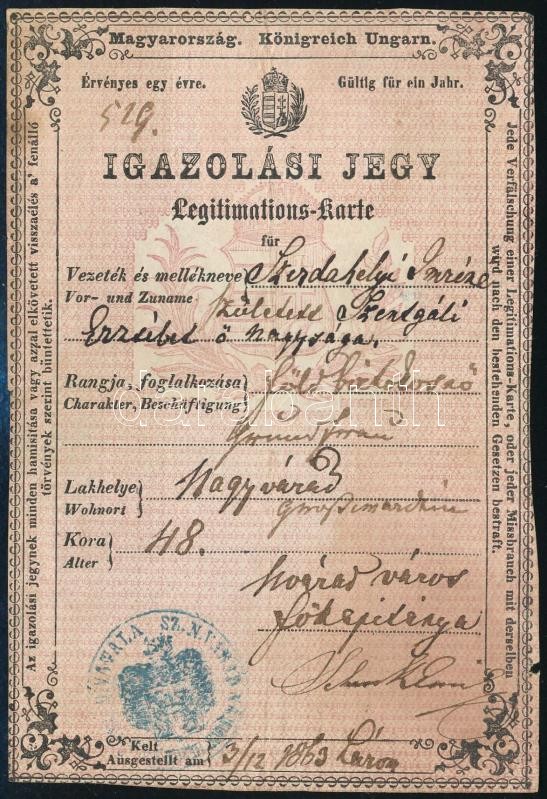 Magyarország. Königreich Ungarn.
Érvényes egy évre. Gültig für ein Jahr.
519.
IGAZOLÁSI JEGY
Legitimations-Karte
für
Vezeték és mellékneve Szerdahelyi Imréné
Vor- und Zuname született Szentgáli
Erzsébet ő nagysága.
Rangja, foglalkozása föld birtokosnő
Charakter, Beschäftigung
Lakhelye Nagyvárad
Wohnort Großwardein
Kora 48.
Alter
Nvárad város
főkapitánya
Kelt
Ausgestellt am 3/12 1863
Az igazolási jegynek minden hamisitása vagy azzal elkövetett visszaélés a' fenálló
törvények szerint büntettetik.
Jede Verfälschung einer Legitimations-Karte, oder jeder Missbrauch mit derselben
wird nach den bestehenden Gesetzen bestraft.
darabanth